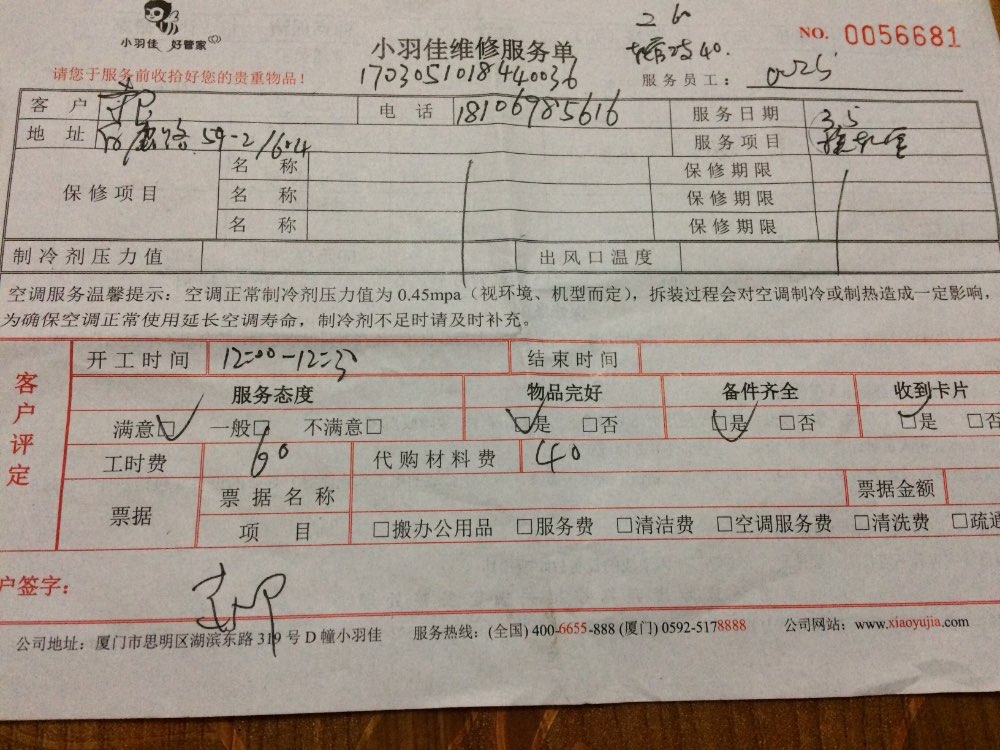 小羽佳 好管家
小羽佳维修服务单
NO. 0056681
请您于服务前收拾好您的贵重物品！
1703051018440036
40.
服务员工： 0025
客户
电话 18106985616
服务日期 3.5
地址 路59-2/604
服务项目
保修项目
名称 保修期限
名称 保修期限
名称 保修期限
制冷剂压力值 出风口温度
空调服务温馨提示：空调正常制冷剂压力值为 0.45mpa（视环境、机型而定），拆装过程会对空调制冷或制热造成一定影响，
为确保空调正常使用延长空调寿命，制冷剂不足时请及时补充。
客户评定
开工时间 12:00-12:30 结束时间
服务态度 物品完好 备件齐全 收到卡片
满意□ 一般□ 不满意□ □是 □否 □是 □否 □是 □否
工时费 60 代购材料费 40
票据 票据名称 票据金额
项目 □搬办公用品 □服务费 □清洁费 □空调服务费 □清洗费 □疏通
户签字：
公司地址：厦门市思明区湖滨东路 319 号 D 幢小羽佳 服务热线：(全国) 400-6655-888 (厦门) 0592-5178888 公司网站：www.xiaoyujia.com